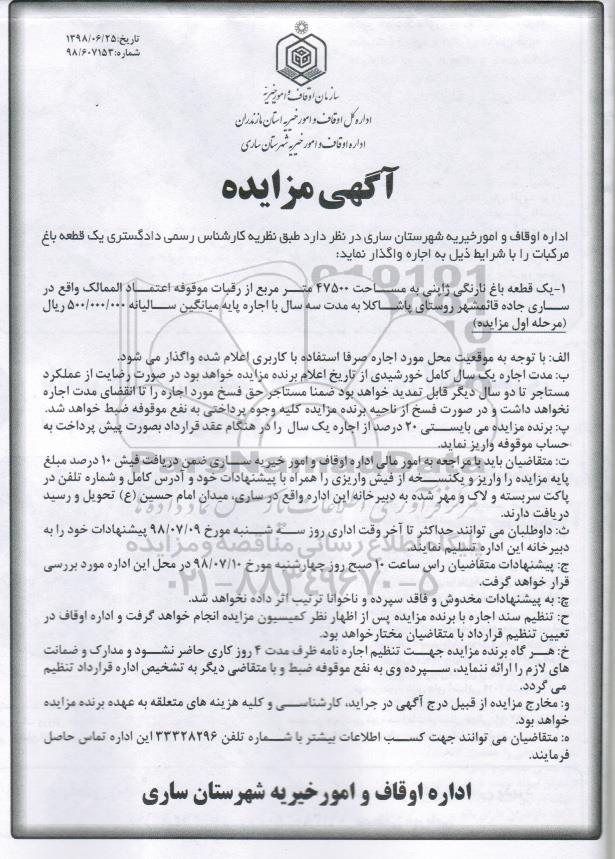 تاریخ:۱۳۹۸/۰۶/۲۵
شماره:۹۸/۶۰۷۱۵۳
سازمان اوقاف و امور خیریه
اداره کل اوقاف و امور خیریه استان مازندران
اداره اوقاف و امور خیریه شهرستان ساری
آگهی مزایده
اداره اوقاف و امورخیریه شهرستان ساری در نظر دارد طبق نظریه کارشناس رسمی دادگستری یک قطعه باغ
مرکبات را با شرایط ذیل به اجاره واگذار نماید:
۱-یک قطعه باغ نارنگی ژاپنی به مساحت ۴۷۵۰۰ متر مربع از رقبات موقوفه اعتماد الممالک واقع در
ساری جاده قائمشهر روستای پاشاکلا به مدت سه سال با اجاره پایه میانگین سالیانه ۵۰۰/۰۰۰/۰۰۰ ریال
(مرحله اول مزایده)
الف: با توجه به موقعیت محل مورد اجاره صرفا استفاده با کاربری اعلام شده واگذار می شود.
ب: مدت اجاره یک سال کامل خورشیدی از تاریخ اعلام برنده مزایده خواهد بود در صورت رضایت از عملکرد
مستاجر تا دو سال دیگر قابل تمدید خواهد بود ضمنا مستاجر حق فسخ مورد اجاره را تا انقضای مدت اجاره
نخواهد داشت و در صورت فسخ از ناحیه برنده مزایده کلیه وجوه پرداختی به نفع موقوفه ضبط خواهد شد.
پ: برنده مزایده می بایستی ۲۰ درصد از اجاره یک سال را در هنگام عقد قرارداد بصورت پیش پرداخت به
حساب موقوفه واریز نماید.
ت: متقاضیان باید با مراجعه به امور مالی اداره اوقاف و امور خیریه ساری ضمن دریافت فیش ۱۰ درصد مبلغ
پایه مزایده را واریز و یکنسخه از فیش واریزی را همراه با پیشنهادات خود و آدرس کامل و شماره تلفن در
پاکت سربسته و لاک و مهر شده به دبیرخانه این اداره واقع در ساری، میدان امام حسین (ع) تحویل و رسید
دریافت دارند.
ث: داوطلبان می توانند حداکثر تا آخر وقت اداری روز سه شنبه مورخ ۹۸/۰۷/۰۹ پیشنهادات خود را به
دبیرخانه این اداره تسلیم نمایند.
ج: پیشنهادات متقاضیان راس ساعت ۱۰ صبح روز چهارشنبه مورخ ۹۸/۰۷/۱۰ در محل این اداره مورد بررسی
قرار خواهد گرفت.
چ: به پیشنهادات مخدوش و فاقد سپرده و ناخوانا ترتیب اثر داده نخواهد شد.
ح: تنظیم سند اجاره با برنده مزایده پس از اظهار نظر کمیسیون مزایده انجام خواهد گرفت و اداره اوقاف در
تعیین تنظیم قرارداد با متقاضیان مختارخواهد بود.
خ: هر گاه برنده مزایده جهت تنظیم اجاره نامه ظرف مدت ۴ روز کاری حاضر نشود و مدارک و ضمانت
های لازم را ارائه ننماید، سپرده وی به نفع موقوفه ضبط و با متقاضی دیگر به تشخیص اداره قرارداد تنظیم
می گردد.
و: مخارج مزایده از قبیل درج آگهی در جراید، کارشناسی و کلیه هزینه های متعلقه به عهده برنده مزایده
خواهد بود.
ه: متقاضیان می توانند جهت کسب اطلاعات بیشتر با شماره تلفن ۳۳۳۲۸۲۹۶ این اداره تماس حاصل
فرمایند.
اداره اوقاف و امورخیریه شهرستان ساری
پایگاه اطلاع رسانی مناقصه و مزایده
۰۲۱-۸۸۳۴۹۶۷۰-۵